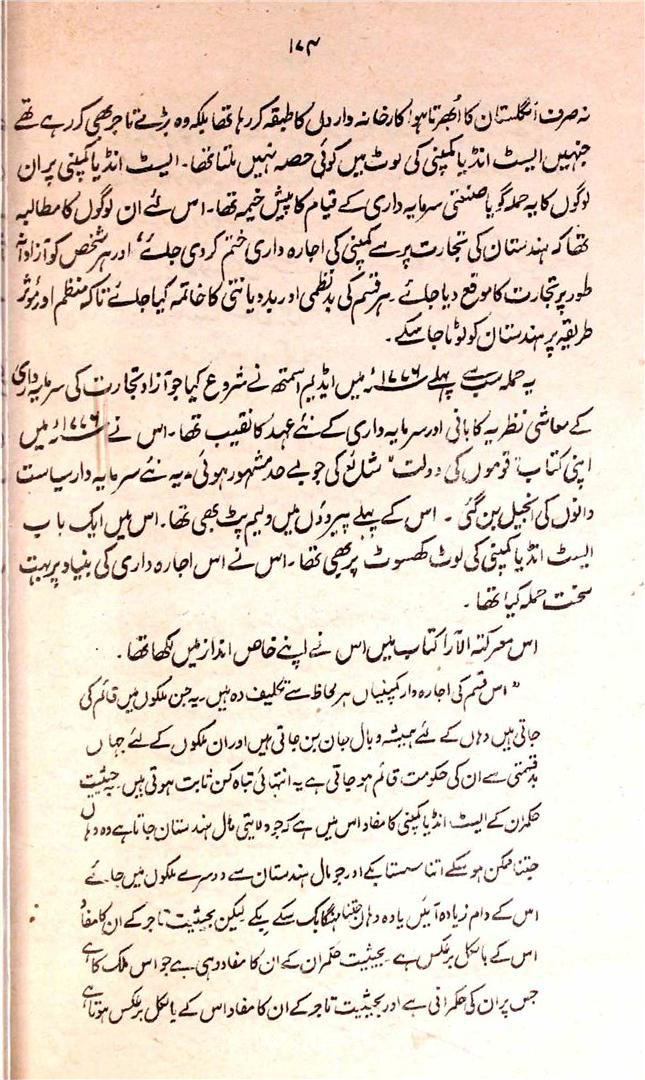 ۱۷۴
نہ صرف انگلستان کا اُبھرتا ہوا کارخانہ دار دل کا طبقہ کر رہا تھا بلکہ وہ بڑے تاجر بھی کر رہے تھے
جنہیں ایسٹ انڈیا کمپنی کی لوٹ میں کوئی حصہ نہیں ملتا تھا۔ ایسٹ انڈیا کمپنی پر ان
لوگوں کا یہ حملہ گویا صنعتی سرمایہ داری کے قیام کا پیش خیمہ تھا۔ اس لئے ان لوگوں کا مطالبہ
تھا کہ ہندستان کی تجارت پر سے کمپنی کی اجارہ داری ختم کر دی جلئے، اور ہر شخص کو آزادانہ
طور پر تجارت کا موقع دیا جائے۔ ہر قسم کی بدنظمی اور بددیانتی کا خاتمہ کیا جائے تاکہ منظم اور مؤثر
طریقہ پر ہندستان کو لوٹا جا سکے۔
یہ حملہ سب سے پہلے ۱۷۷۶ء میں ایڈیم اسمتھ نے شروع کیا جو آزاد تجارت کی سرمایہ داری
کے معاشی نظریہ کا بانی اور سرمایہ داری کے نئے عہد کا نقیب تھا۔ اس نے ۱۷۷۶ء میں
اپنی کتاب "قوموں کی دولت" شائع کی جو بے حد مشہور ہوئی۔ یہ نئے سرمایہ دار سیاست
دانوں کی انجیل بن گئی۔ اس کے پہلے پیروؤں میں ولیم پٹ بھی تھا۔ اس میں ایک باب
ایسٹ انڈیا کمپنی کی لوٹ کھسوٹ پر بھی تھا۔ اس نے اس اجارہ داری کی بنیاد پر بہت
سخت حملہ کیا تھا۔
اس معرکتہ الآرا کتاب میں اس نے اپنے خاص انداز میں لکھا تھا۔
"اس قسم کی اجارہ دار کمپنیاں ہر لحاظ سے تکلیف دہ ہیں۔ یہ جن ملکوں میں قائم کی
جاتی ہیں وہاں کے لئے ہمیشہ وبال جان بن جاتی ہیں اور ان ملکوں کے لئے جہاں
بدقسمتی سے ان کی حکومت قائم ہو جاتی ہے یہ انتہائی تباہ کن ثابت ہوتی ہیں۔ بحیثیت
حکمران کے ایسٹ انڈیا کمپنی کا مفاد اس میں ہے کہ جو ولایتی مال ہندستان جاتا ہے وہ وہاں
جتنا ممکن ہو سکے اتنا سستا بکے اور جو مال ہندستان سے دوسرے ملکوں میں جائے
اس کے دام زیادہ آئیں یا وہ وہاں جتنا مہنگا بک سکے بکے لیکن بحیثیت تاجر کے ان کا مفاد
اس کے بالکل برعکس ہے۔ بحیثیت حکمران کے ان کا مفاد وہی ہے جو اس ملک کا ہے
جس پر ان کی حکمرانی ہے اور بحیثیت تاجر کے ان کا مفاد اس کے بالکل برعکس ہوتا ہے